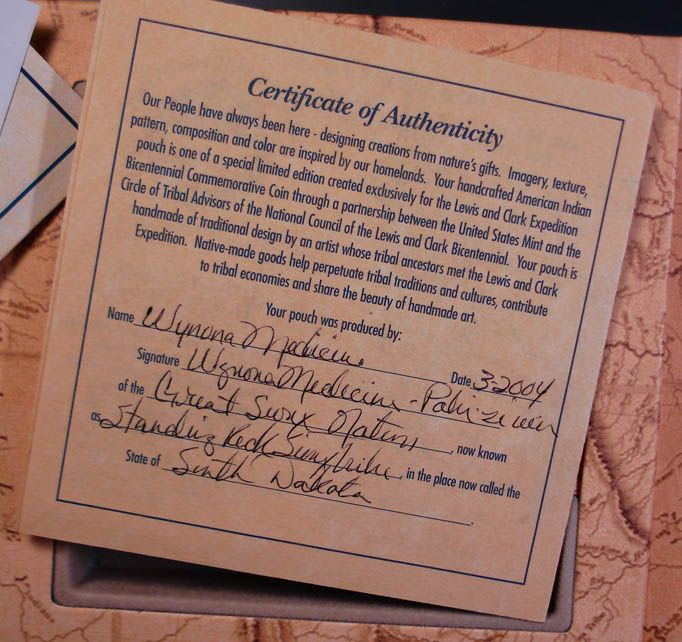 Certificate of Authenticity
Our People have always been here - designing creations from nature's gifts. Imagery, texture,
pattern, composition and color are inspired by our homelands. Your handcrafted American Indian
pouch is one of a special limited edition created exclusively for the Lewis and Clark Expedition
Bicentennial Commemorative Coin through a partnership between the United States Mint and the
Circle of Tribal Advisors of the National Council of the Lewis and Clark Bicentennial. Your pouch is
handmade of traditional design by an artist whose tribal ancestors met the Lewis and Clark
Expedition. Native-made goods help perpetuate tribal traditions and cultures, contribute
to tribal economies and share the beauty of handmade art.
Your pouch was produced by:
Name Wynona Medicine Date 3-2004
Signature Wynona Medicine -
of the Great Sioux Nation, now known
as Standing Rock Sioux Tribe, in the place now called the
State of South Dakota.